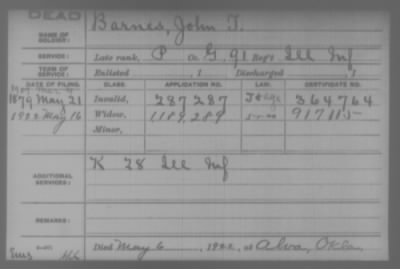 DEAD
NAME OF SOLDIER: Barnes, John T.
SERVICE: Late rank, P Co. G, 91 Reg't Ill Inf
TERM OF SERVICE: Enlisted , 1 Discharged , 1
DATE OF FILING. CLASS. APPLICATION NO. LAW. CERTIFICATE NO.
1879 May 21 Invalid, 287287 364764
1922 May 16 Widow, 1189,289 917115
Minor,
ADDITIONAL SERVICES: K 28 Ill Inf
REMARKS:
Died May 6, 1922, at Alva, Okla.